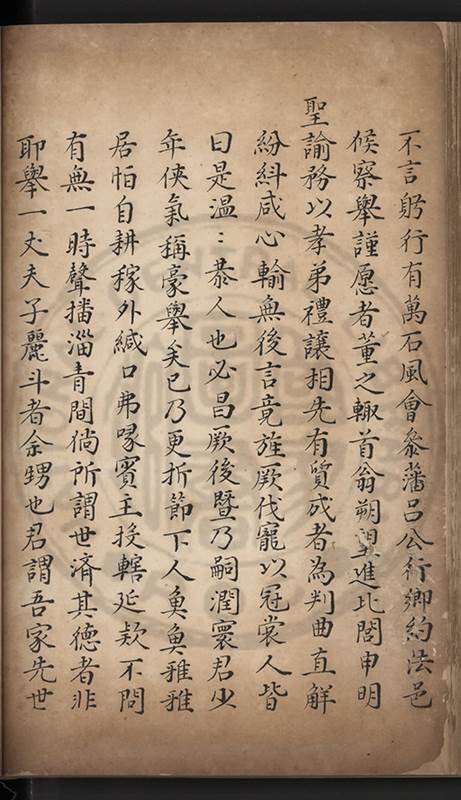 不言躬行有萬石風會叅藩呂公行鄉約法邑
候察舉謹愿者董之輙首翁朔望進比閭申明
聖諭務以孝弟禮讓相先有質成者為判曲直解
紛糾咸心輸無後言竟旌厥伐寵以冠裳人皆
曰是温:恭人也必昌厥後暨乃嗣潤寰君少
年俠氣稱豪舉矣已乃更折節下人奐奐雅雅
居怕自耕稼外緘口弗喙賓主投轄延欵不問
有無一時聲播淄青間倘所謂世済其德者非
耶舉一丈夫子麗斗者余甥也君謂吾家先世